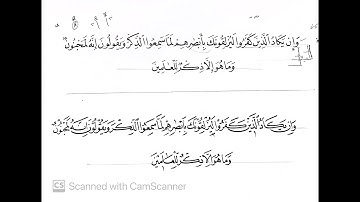 وَإِن يَكَادُ الَّذِينَ كَفَرُوا لَيُزْلِقُونَكَ بِأَبْصَٰرِهِمْ لَمَّا سَمِعُوا الذِّكْرَ وَيَقُولُونَ إِنَّهُ لَمَجْنُونٌ
وَمَا هُوَ إِلَّا ذِكْرٌ لِلْعَٰلَمِينَ
وَإِن يَكَادُ الَّذِينَ كَفَرُوا لَيُزْلِقُونَكَ بِأَبْصَٰرِهِمْ لَمَّا سَمِعُوا الذِّكْرَ وَيَقُولُونَ إِنَّهُ لَمَجْنُونٌ
وَمَا هُوَ إِلَّا ذِكْرٌ لِلْعَٰلَمِينَ
CS Scanned with CamScanner